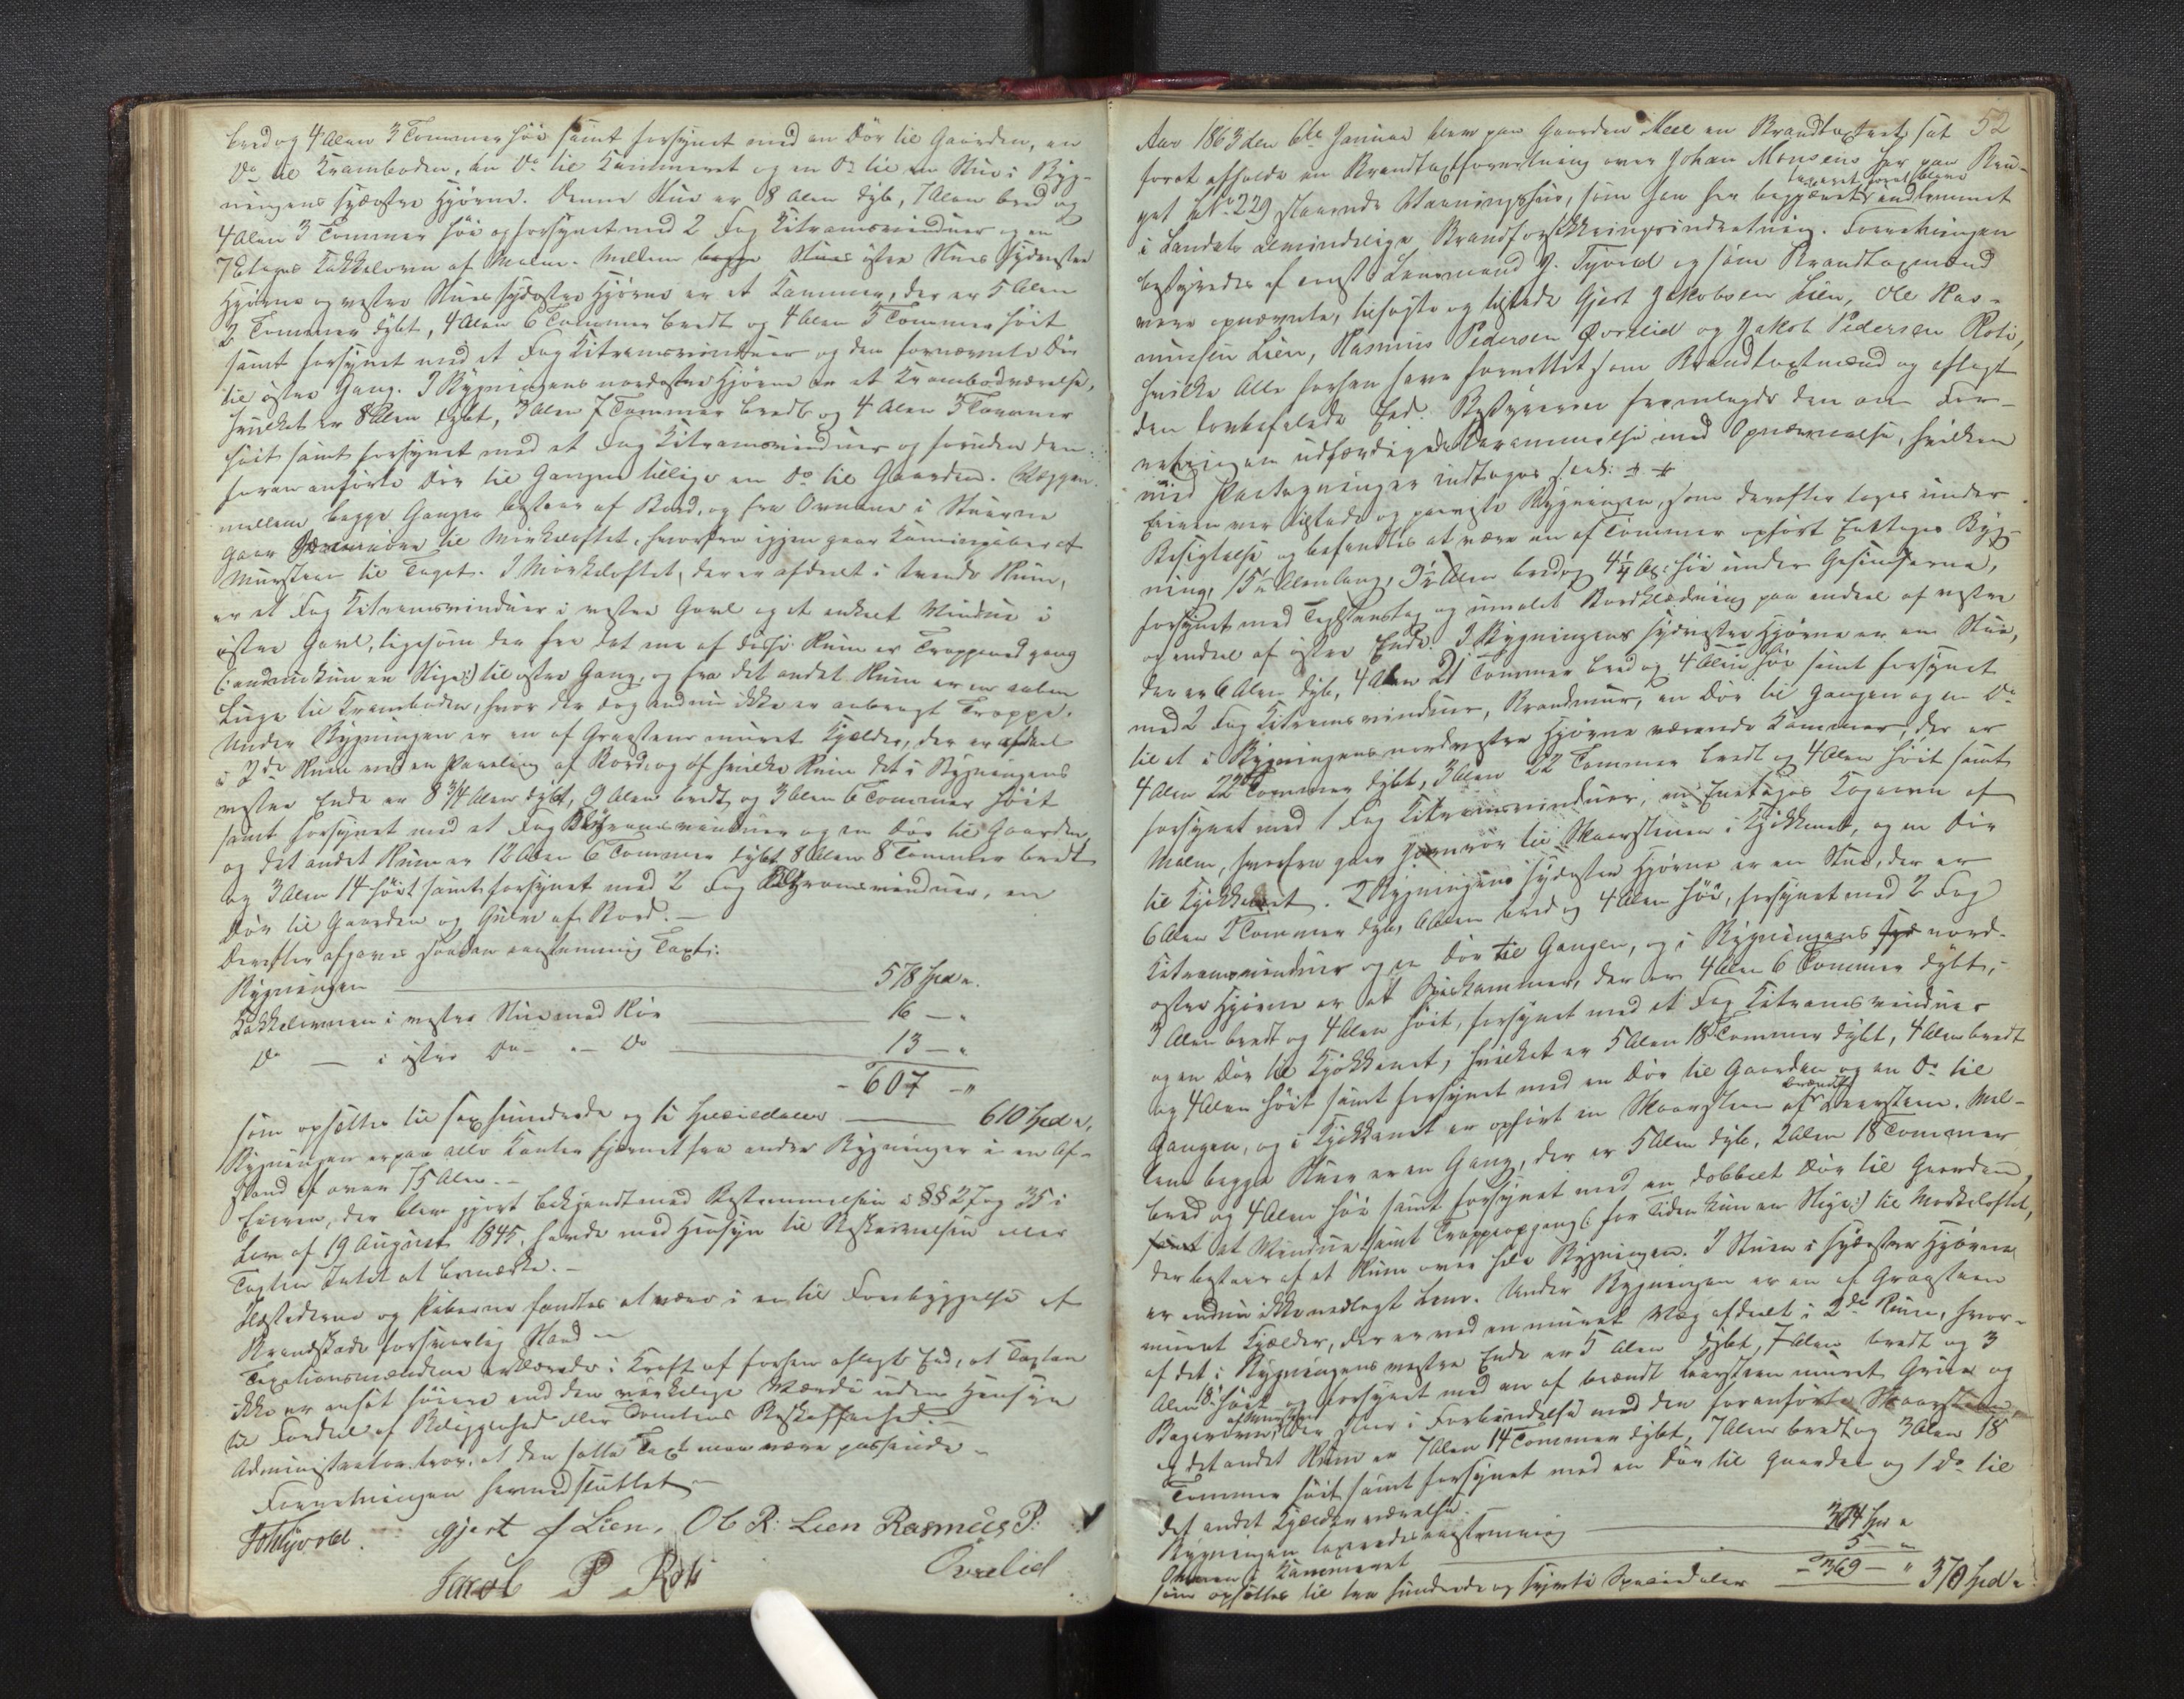 bred og 4 Alen 3 Tommer høi samt forsynet med en Dør til Gaarden, en
Do til Kramboden, en Do til Kammeret og en Do til en Stue i Byg-
ningens sydøstre Hjørne. Denne Stue er 8 Alen dyb, 7 Alen bred og
4 Alen 3 Tommer høi og forsynet med 2 Fag Kitramsvinduer og en
7 Etages Kakkelovn af Malm. Mellem begge Stues østre Stues sydvestre
Hjørne og vestre Stues sydøstre Hjørne er et Kammer, der er 5 Alen
2 Tommer dybt, 4 Alen 6 Tommer bredt og 4 Alen 3 Tommer høit
samt forsynet med et Fag Kitramsvinduer og den fornævnte Dør
til østre Gang. I Bygningens nordøstre Hjørne er et Krambodværelse,
hvilket er 8 Alen dybt, 3 Alen 7 Tommer bredt og 4 Alen 3 Tommer
høit samt forsynet med et Fag Kitramsvinduer og foruden den
foran anførte Dør til Gangen tillige en Do til Gaarden. Væggen
mellem begge Gange bestaar af Bord, og fra Ovnene i Stuerne
gaar Jernrøre til Mørkeloftet, hvorfra igjen gaar Kaminpiber af
Mursteen til Taget. I Mørkeloftet, der er afdeelt i tvende Rum,
er et Fag Kitramsvinduer i vestre Gavl og et enkelt Vindue i
østre Gavl, ligesom der fra det ene af disse Rum er Trappenedgang
(: endnu kun en Stige :) til østre Gang, og fra det andet Rum er en aaben
Luge til Kramboden, hvor der dog endnu ikke er anbragt Trappe.
Under Bygningen er en af Graasteen muret Kjælder, der er afdeelt
i 2de Rum ved en Paneling af Bord, og af hvilke Rum det i Bygningens
vestre Ende er 8 3/4 Alen dybt, 9 Alen bredt og 3 Alen 6 Tommer høit
samt forsynet med et Fag Blyramsvinduer og en Dør til Gaarden,
og det andet Rum er 12 Alen 6 Tommer dybt 8 Alen 8 Tommer bredt
og 3 Alen 14 høit samt forsynet med 2 Fag Blyramsvinduer, en
Dør til Gaarden og Gulv af Bord. –
Derefter afgaves saadan eenstemmig Taxt:
Bygningen 578 Spd ".
Kakkelovnen i vestre Stue med Rør 16 – "
Do – i østre Do – " – Do 13 – "
- 607 – "
som opsættes til sexhundrede og ti Speciedaler 610 Spd ".
Bygningen er paa alle Kanter fjernet fra andre Bygninger i en Af-
stand af over 75 Alen. –
Eieren, der blev gjort bekjendt med Bestemmelsen i §§ 27 og 35 i
Lov af 19 August 1845, havde med Hensyn til Beskrivelsen eller
Taxten Intet at bemærke. –
Ildstederne og Piberne fandtes at være i en til Forebyggelse af
Brandskade forsvarlig Stand –
Taxationsmændene erklærede i Kraft af forhen aflagt Eed, at Taxten
ikke er ansat høiere end den virkelige Værdi uden Hensyn
til Fordeel af Beliggenhed eller Tomtens Beskaffenhed. –
Administrator tror, at den satte Taxt maa være passende –
Forretningen hermed sluttet –
Tyvold. gjert J Lien, Ole R: Lien Rasmus P:
Jacob P Roti Øvrelid
52
Aar 1863 den 6te Januar blev paa Gaarden Meel en Brandtaxtret sat
forat afholde en Brandtaxtforretning over Johan Monsens her paa Bru-
taxeret forat blive
get LNo 229 staaende Vaaningshus, som han har begjæret indlemmet
i Landets almindelige Brandforsikkringsindretning. Forretningen
bestyredes af const. Lensmand J. Tyvold og som Brandtaxmænd
vare opnævnte, tilsagte og tilstede Gjert Jakobsen Lien, Ole Ras-
mussen Lien, Rasmus Pedersen Øvrelid og Jakob Pedersen Roti,
hvilke Alle forhen have forrettet som Brandtaxtmænd og aflagt
den lovbefalede Eed. Bestyreren fremlagde den om For-
retningen udfærdigede Berammelse med Opnævnelse, hvilken
med Paategninger indtages saal: # #
Eieren var tilstede og paaviste Bygningen, som derefter toges under
Besigtelse og befandtes at være en af Tømmer opført Eetages Byg-
ning, 15 1/2 Alen lang, 9 1/2 Alen bred og 4 1/4 Al: høi under Gesimserne,
forsynet med Teglsteenstag og umalet Bordklædning paa endeel af vestre
og endeel af østre Ende. I Bygningens sydvestre Hjørne er en Stue,
der er 6 Alen dyb, 4 Alen 21 Tommer bred og 4 Alen høi samt forsynet
med 2 Fag Kitramsvinduer, Brandmuur, en Dør til Gangen og en Do
til et i Bygningens nordvestre Hjørne værende Kammer, der er
4 Alen 22 Tommer dybt, 3 Alen 22 Tommer bredt og 4 Alen høit samt
forsynet med 1 Fag Kitramsvinduer, en Eenetages Kogeovn af
Malm, hvorfra gaar Jernrør til Skorstenen i Kjøkkenet, og en Dør
til Kjøkkenet. I Bygningens sydøstre Hjørne er en Stue, der er
6 Alen 2 Tommer dyb, 6 Alen bred og 4 Alen høi, forsynet med 2 Fag
Kitramsvinduer og en Dør til Gangen, og i Bygningens syd nord-
østre Hjørne er et Spiskammer, der er 4 Alen 6 Tommer dybt,
3 Alen bredt og 4 Alen høit, forsynet med et Fag Kitramsvinduer
og en Dør til Kjøkkenet, hvilket er 5 Alen 18 Tommer dybt, 4 Alen bredt
og 4 Alen høit samt forsynet med en Dør til Gaarden og en Do til
brændt
Gangen, og i Kjøkkenet er opført en Skaarsteen af Leersteen. Mel-
lem begge Stuer er en Gang, der er 5 Alen dyb, 2 Alen 18 Tommer
bred og 4 Alen høi samt forsynet med en dobbelt Dør til Gaarden,
samt et Vindue samt Trappeopgang (: for Tiden kun en Stige :) til Mørkeloftet,
der bestaar af et Rum over hele Bygningen. I Stuen i sydøstre Hjørne
er endnu ikke nedlagt Lem. Under Bygningen er en af Graasteen
muret Kjælder, der er ved en muret Væg afdeelt i 2de Rum, hvor-
af det i Bygningens vestre Ende er 5 Alen dybt, 7 Alen bredt og 3
Alen 18" høit og forsynet med en af brændt Leersteen muret Grue og
af Mursteen
Bagerovn, der staar i Forbindelse med den foranførte Skaarsteen,
og det andet Rum er 7 Alen 14 Tommer dybt, 7 Alen bredt og 3 Alen 18
Tommer høit samt forsynet med en Dør til Gaarden og 1 Do til
det andet Kjælderværelse. –
Bygningen taxeredes eenstemmig 364 Spd "
Ovnen i Kammeret 5 – "
- 369 – "
som opsættes til tre hundrede og sytti Speciedaler 370 Spd ".